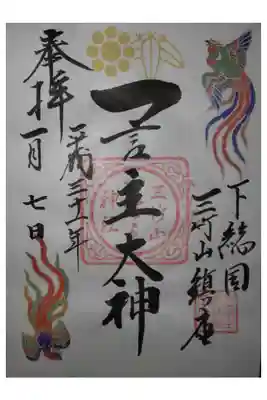 下総国
三竹山鎮座
一言主大神
平成三十一年
奉拝
一月七日